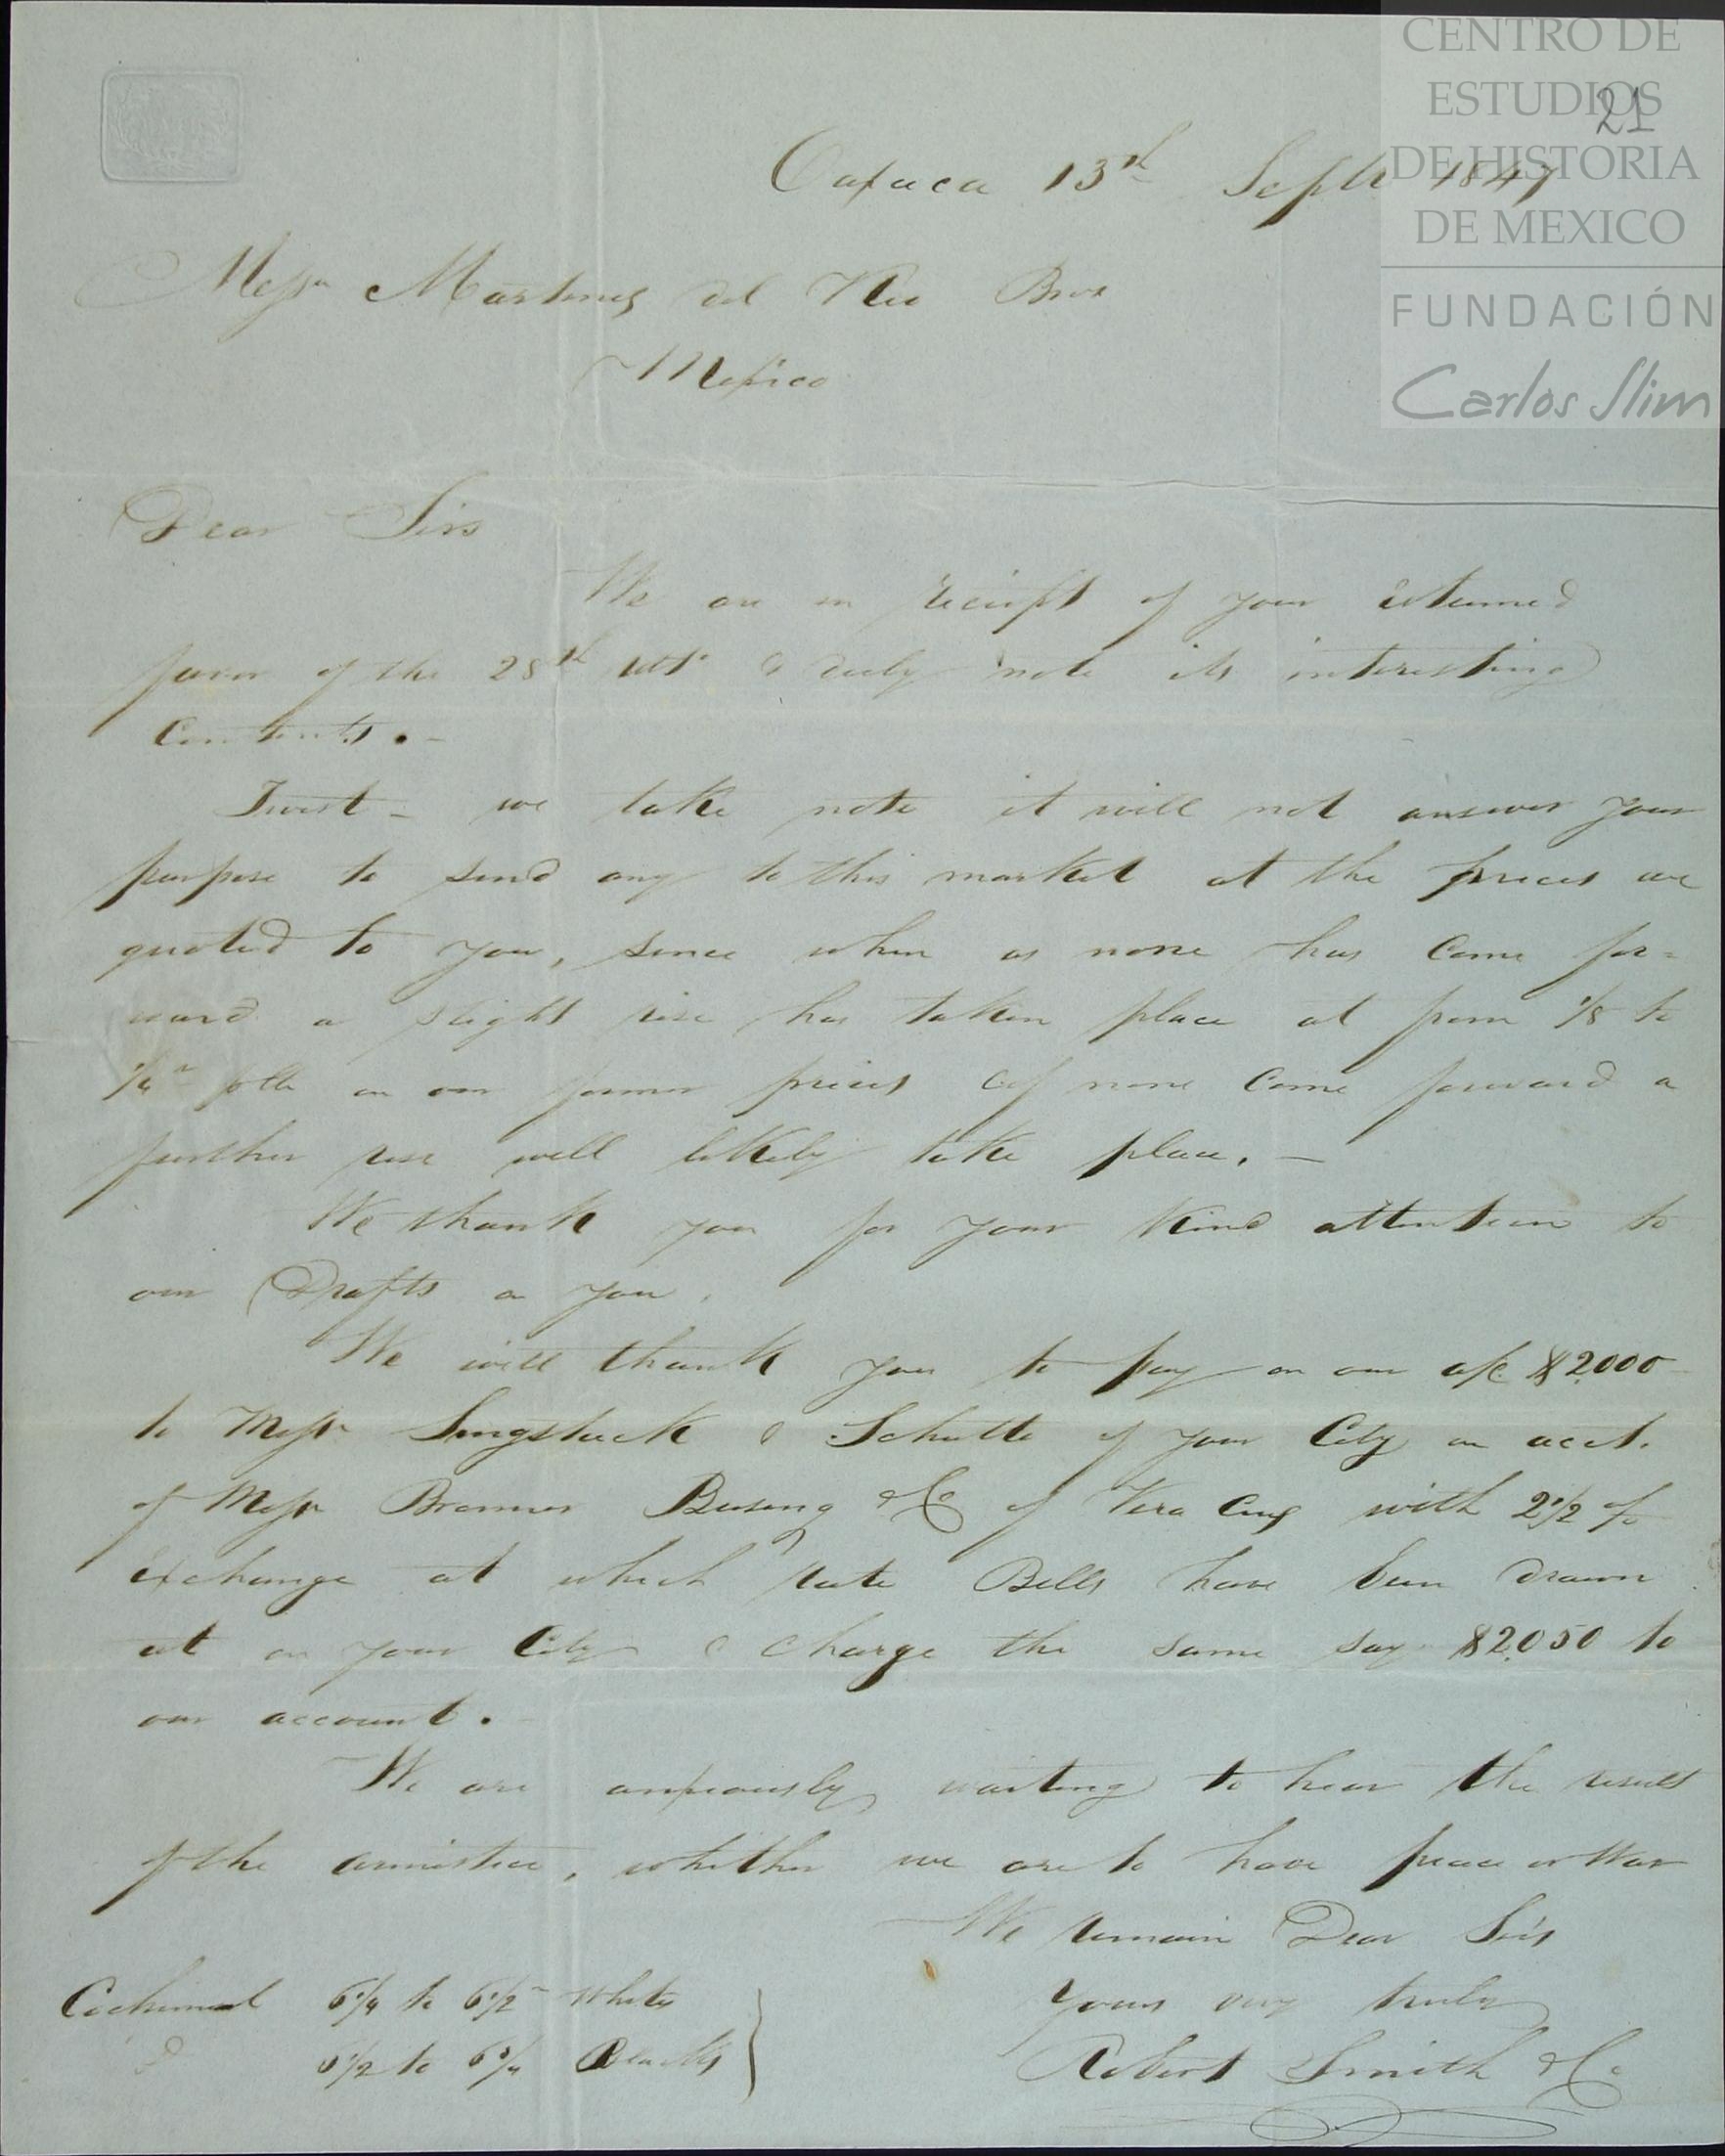 CENTRO DE
ESTUDIOS
DE HISTORIA
DE MEXICO
FUNDACIÓN
Carlos Slim
21
Oaxaca 13th Septr 1847
Messrs Martinez del Rio Bros
Mexico
Dear Sirs
We are in receipt of your esteemed
favor of the 28th ulto & duly note its interesting
Contents. -
Twist - we take note it will not answer your
purpose to send any to this market at the prices we
quoted to you, since when as none has come for=
ward a slight rise has taken place at from 1/8 to
1/4 r p lb on our former prices & if none come forward a
further rise will likely take place. -
We thank you for your kind attention to
our Drafts on you.
We will thank you to pay on our a/c $2.000
to Messrs & Schutte of your City on acct.
of Messrs Busing & Co of Vera Cruz with 2 1/2 %
exchange at which rate Bills have been drawn
at on your City & charge the same say $2.050 to
our account.
We are anxiously waiting to hear the result
of the armistice, whether we are to have peace or War
We remain Dear Sirs
Yours very truly
Robert Smith & Co
Cochineal 6 1/4 to 6 1/2 White
D 6 1/2 to 6 3/4 Blacks